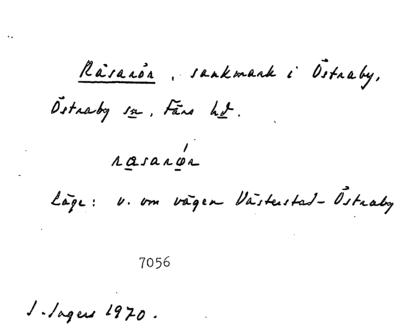 Råsarör, sankmark i Östraby,
Östraby sn, Färs hd.
rasarör
Läge: v. om vägen Västerstad-Östraby
7056
J. Ingers 1970.